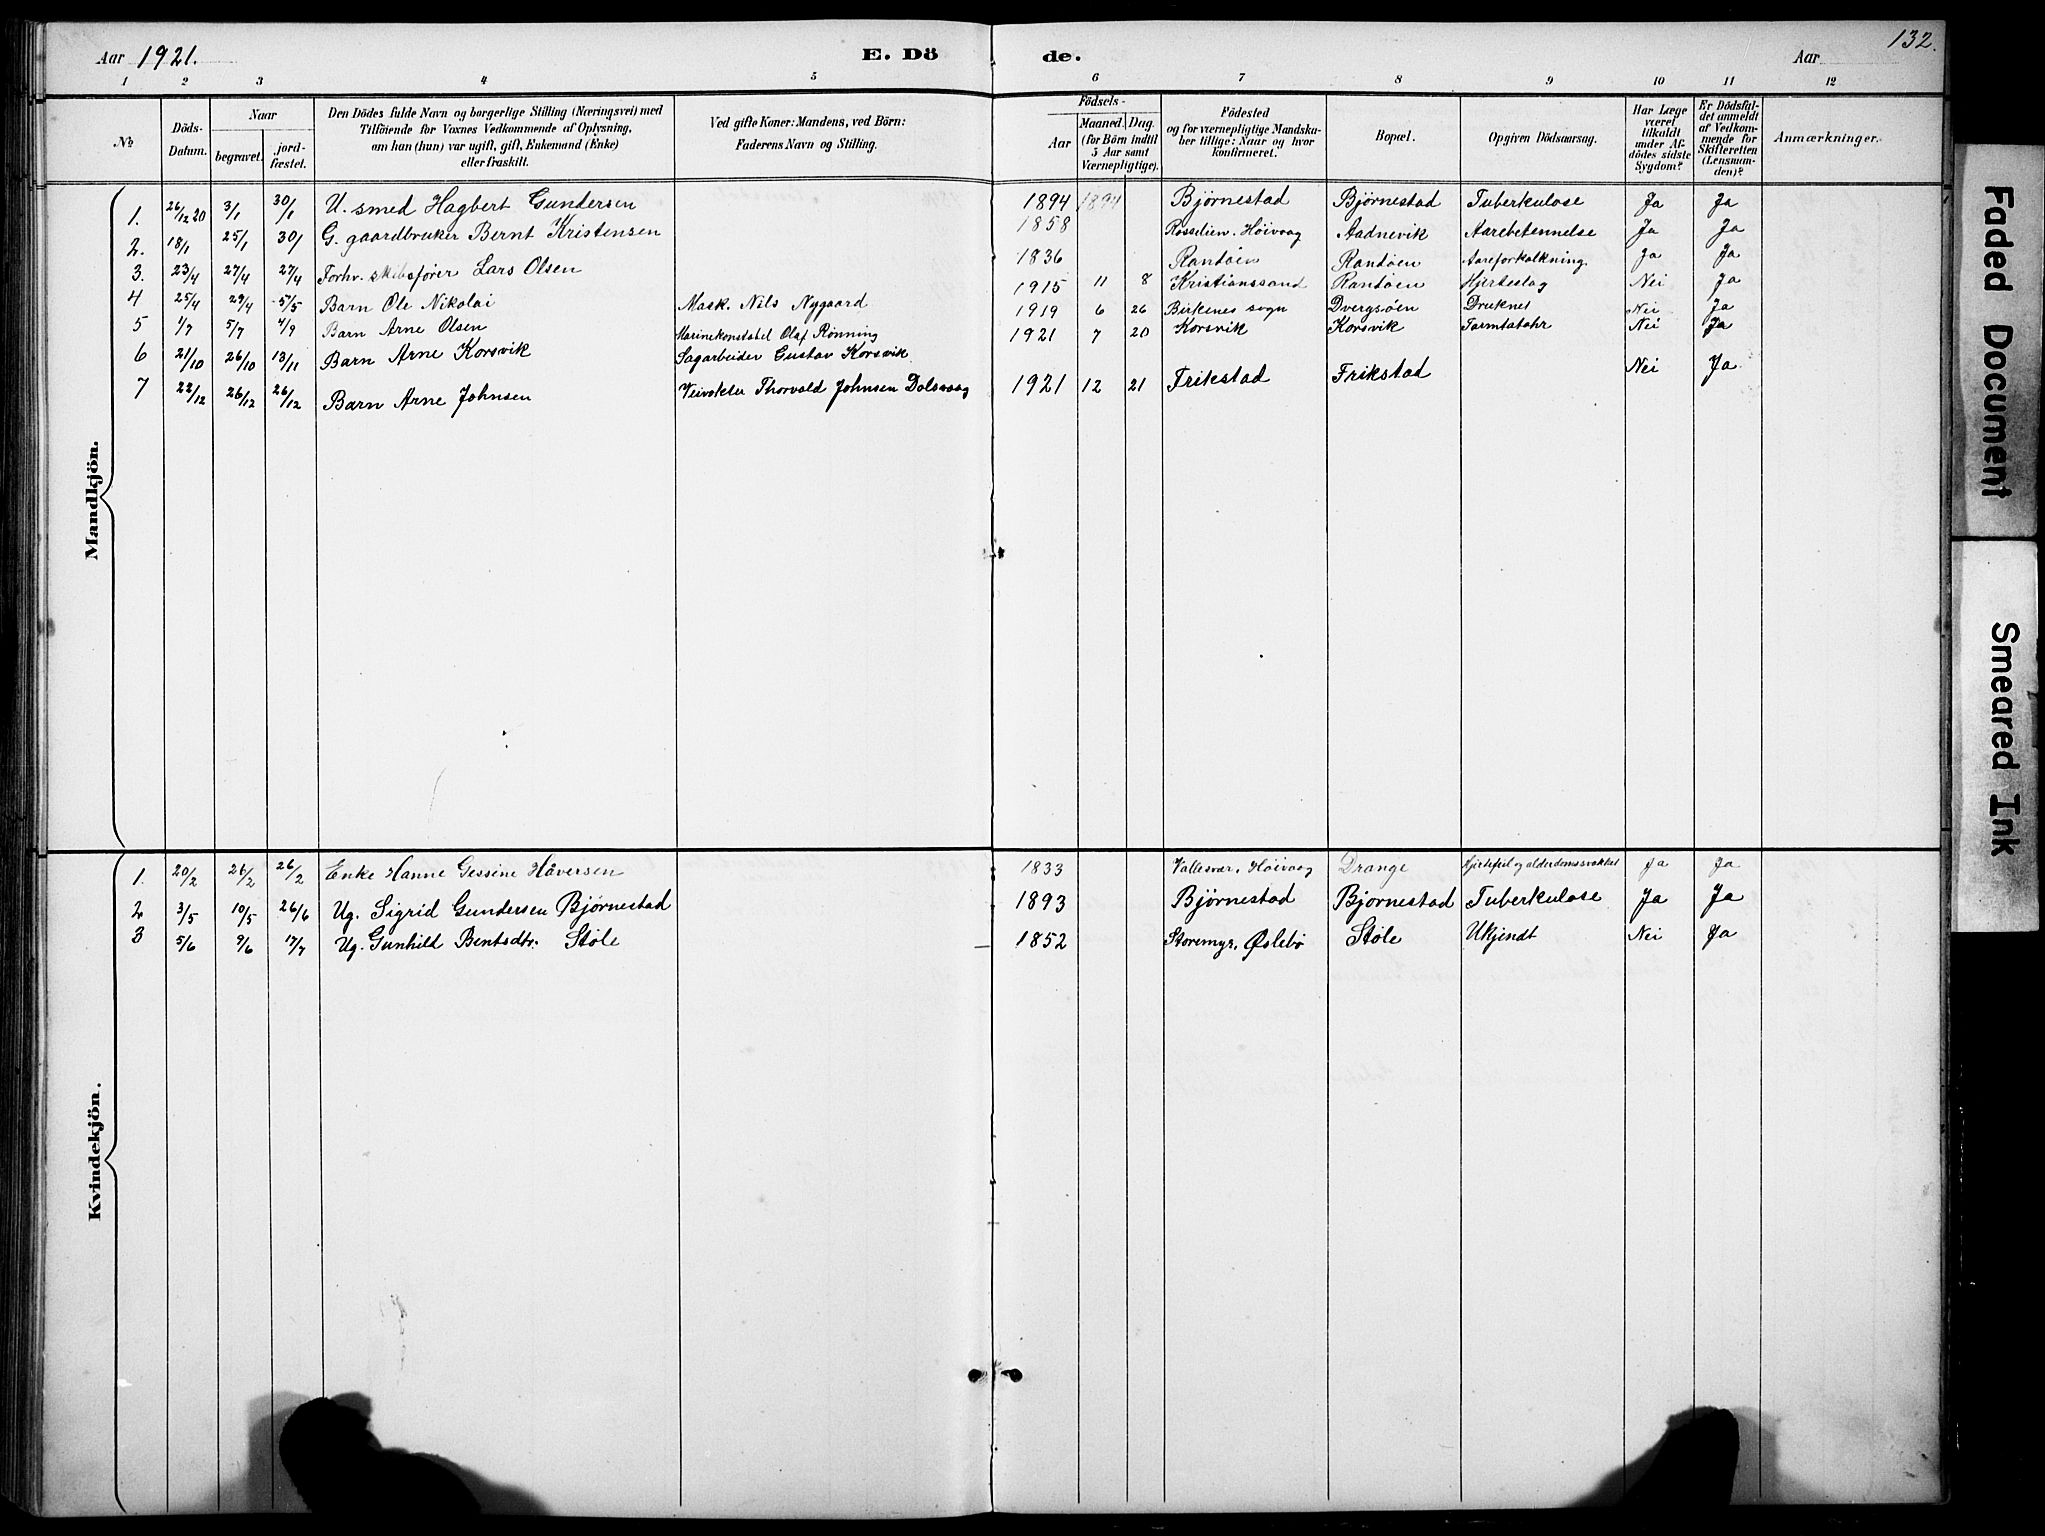 Aar 1921. E. Dö de. Aar 132.
1 2 3 4 5 6 7 8 9 10 11 12
No
Döds-Datum.
Naar
begravet.
jordfæstet.
Den Dödes fulde Navn og borgerlige Stilling (Næringsvei) med
Tilföiende for Voxnes Vedkommende af Oplysning,
om han (hun) var ugift, gift, Enkemand (Enke)
eller fraskilt.
Ved gifte Koner: Mandens, ved Börn:
Faderens Navn og Stilling.
Födsels-
Aar
Maaned. Dag.
(for Börn indtil
5 Aar samt
Værnepligtige).
Födested
og for værnepligtige Mandska-
ber tillige: Naar og hvor
konfirmeret.
Bopæl.
Opgiven Dödsaarsag.
Har Læge
været
tilkaldt
under Af-
dödes sidste
Sygdom?
Er Dödsfal-
det anmeldt
af Vedkom-
mende for
Skifteretten
(Lensman-
den)?
Anmærkninger.
Mandkjön.
1. 26/12 20 3/1 30/1 U. smed Hagbert Gundersen 1894 1894 Bjørnestad Bjørnestad Tuberkulose Ja Ja
2. 18/1 25/1 30/1 G. gaardbruker Bernt Kristensen 1858 Høivaag Aadnevik Aarebetennelse Ja Ja
3. 23/4 27/4 27/4 Forhv. skibsfører Lars Olsen 1836 Randøen Randøen Aareforkalkning. Ja Ja
4 25/4 29/4 5/5 Barn Ole Nikolai Mask. Nils Nygaard 1915 11 8 Kristianssand Randøen Hjerteslag Nei Ja
5 1/7 5/7 4/9 Barn Arne Olsen Marinekonstabel Olaf Rønning 1919 6 26 Birkenes sogn Dvergsøen Druknet Nei Ja
6 21/10 26/10 13/11 Barn Arne Korsvik Sagarbeider Gustav Korsvik 1921 7 20 Korsvik Korsvik Tarmkatahr Nei Ja
7 22/12 26/12 26/12 Barn Arne Johnsen Veivokter Thorvald Johnsen Dolsvaag 1921 12 21 Frikstad Frikstad Nei Ja
Kvindekjön.
1. 20/2 26/2 26/2 Enke Hanne Gessine Håversen 1833 Vallesvær, Høivaag Drange Hjertefeil og alderdomssvakhet Ja Ja
2 3/5 10/5 26/6 Ug. Sigrid Gundersen Bjørnestad 1893 Bjørnestad Bjørnestad Tuberkulose Ja Ja
3 5/6 9/6 17/7 Ug. Gunhild Bentsdtr. Støle 1852 Storemyr, Øslebø Støle Ukjendt Nei Ja
Faded Document
Smeared Ink